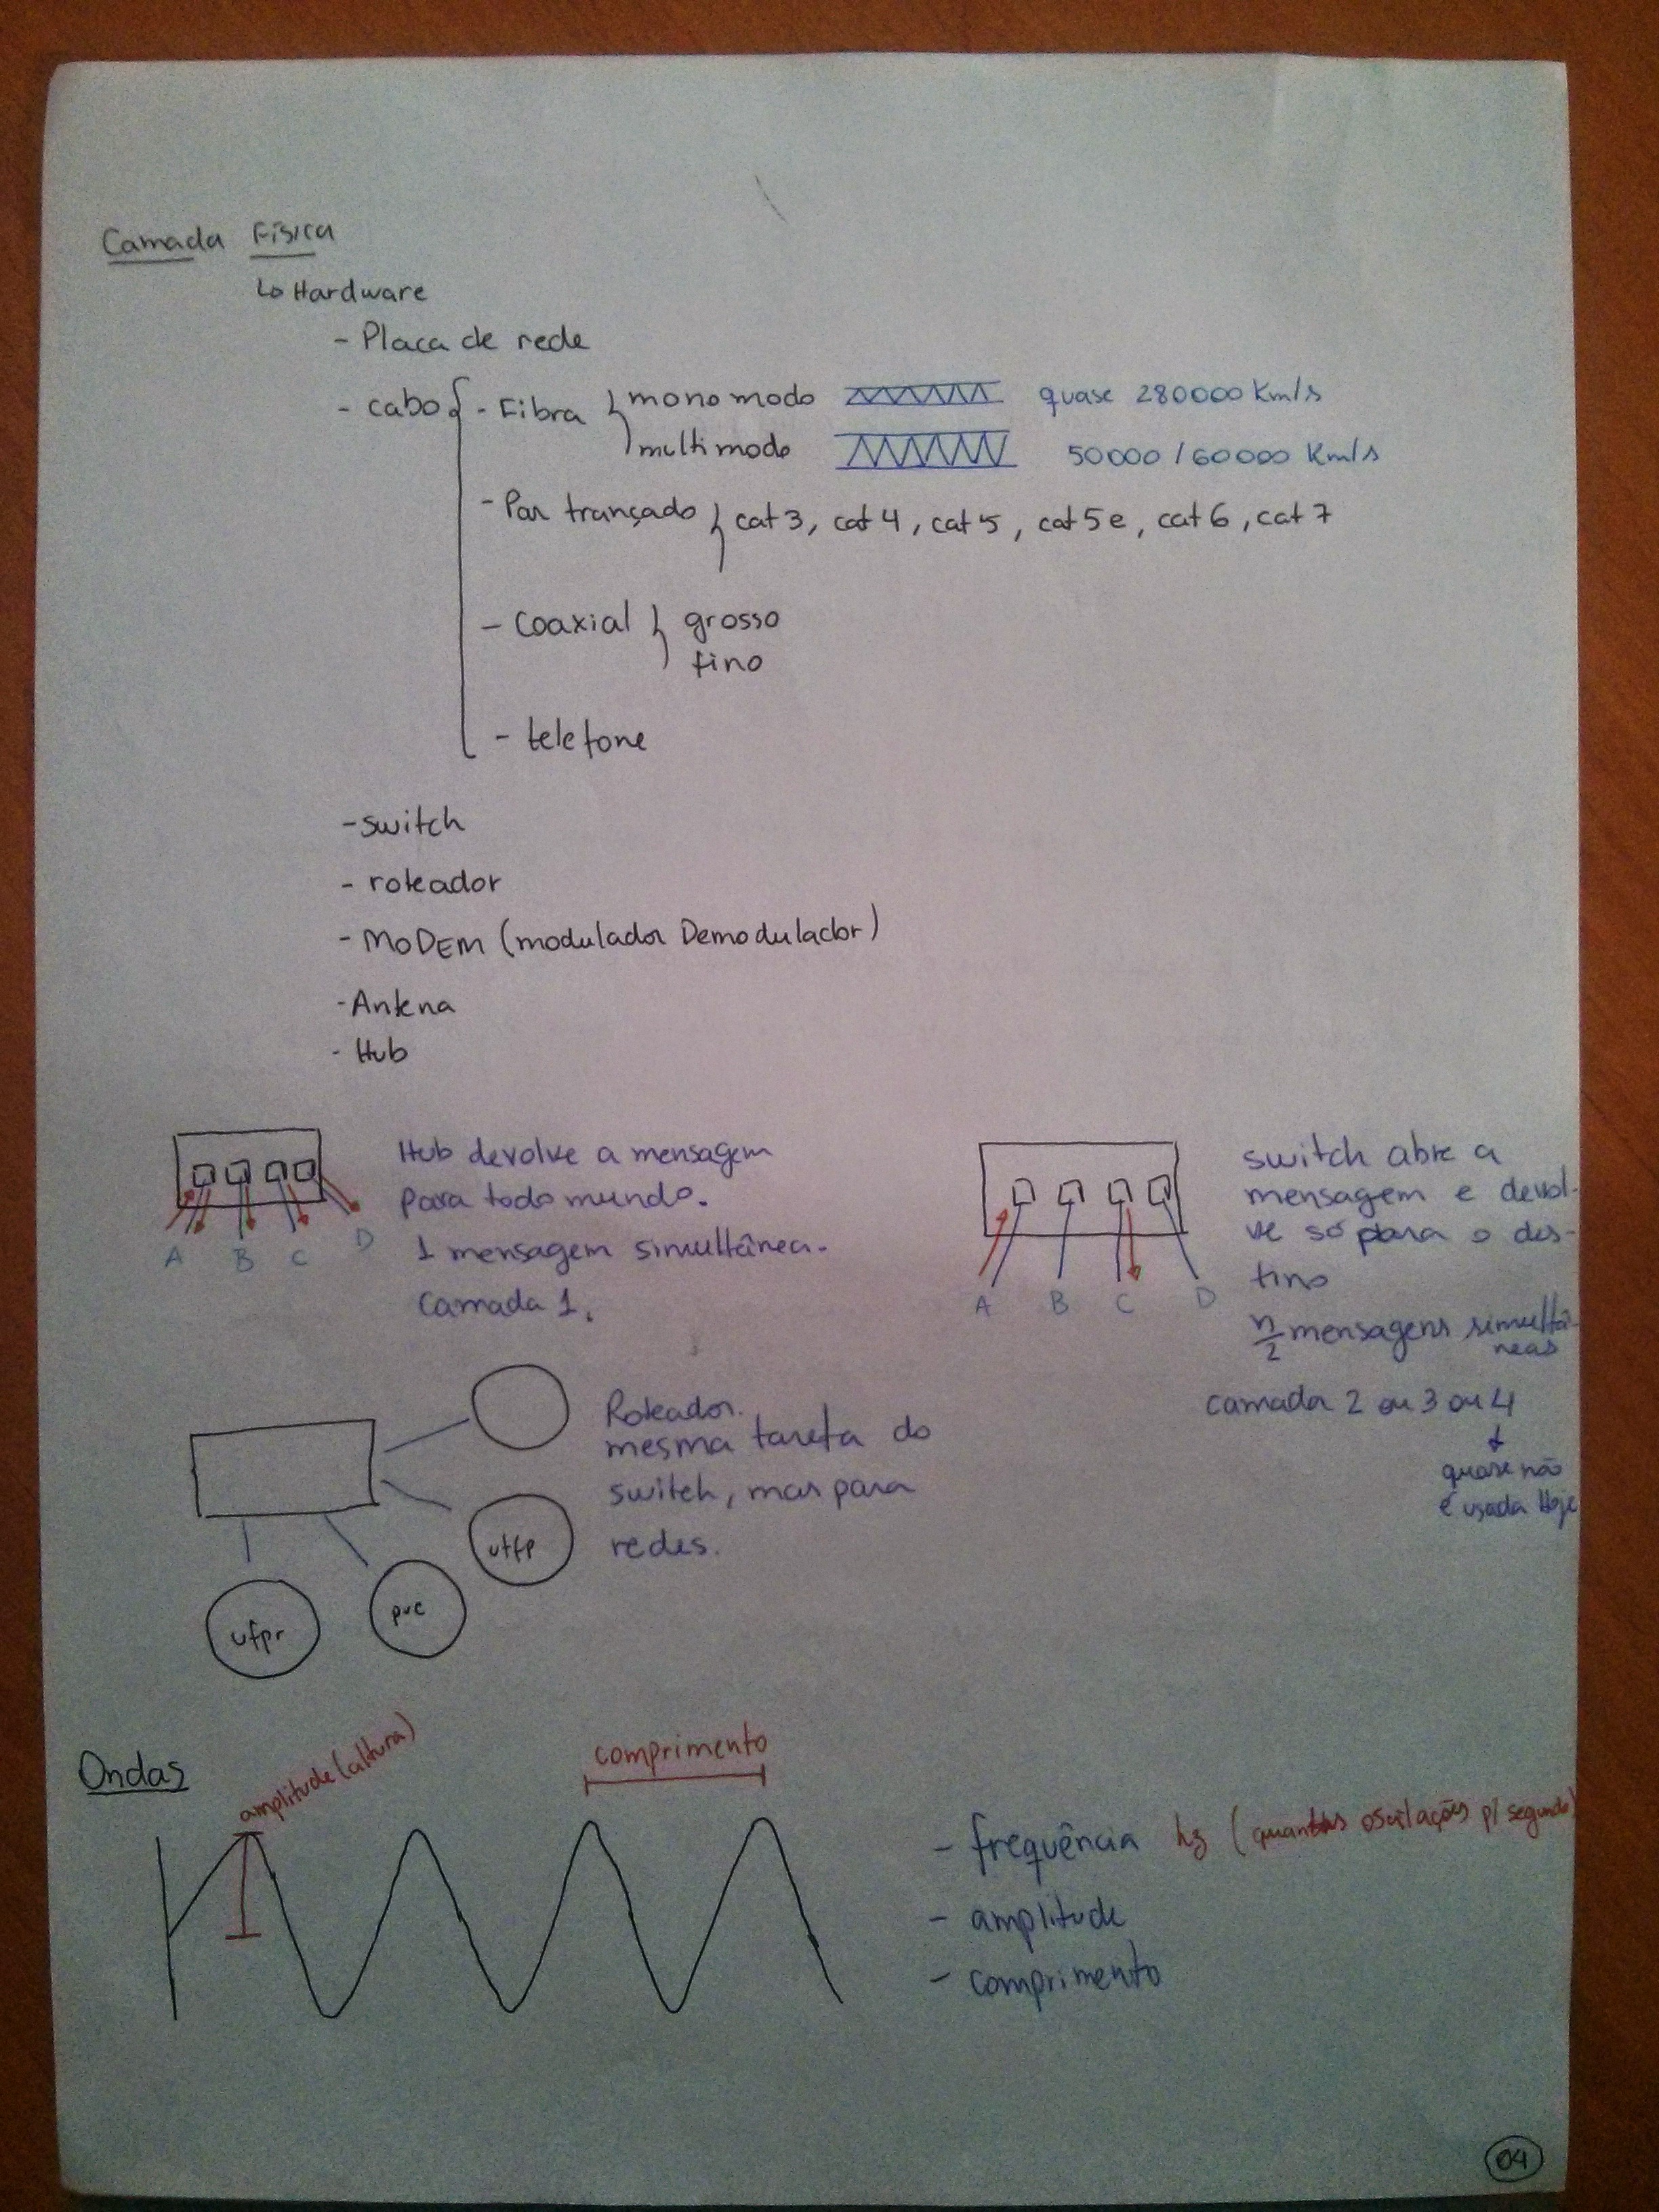 Camada Física
↳ Hardware
- Placa de rede
- cabo { - Fibra { monomodo quase 280000 Km/s
multimodo 50000/60000 Km/s
- Par trançado { cat 3, cat 4, cat 5, cat 5e, cat 6, cat 7
- Coaxial { grosso
fino
- telefone
- switch
- roteador
- MODEM (modulador Demodulador)
- Antena
- Hub
Hub devolve a mensagem
para todo mundo.
1 mensagem simultânea.
Camada 1.
A B C D
switch abre a
mensagem e devol-
ve só para o des-
tino
n/2 mensagens simultâ-
neas
camada 2 ou 3 ou 4
↓
quase não
é usada Hoje
A B C D
Roteador.
mesma tarefa do
switch, mas para
redes.
utfp
ufpr
puc
Ondas
amplitude (altura)
comprimento
- frequência hz (quantas oscilações p/ segundo)
- amplitude
- comprimento
04